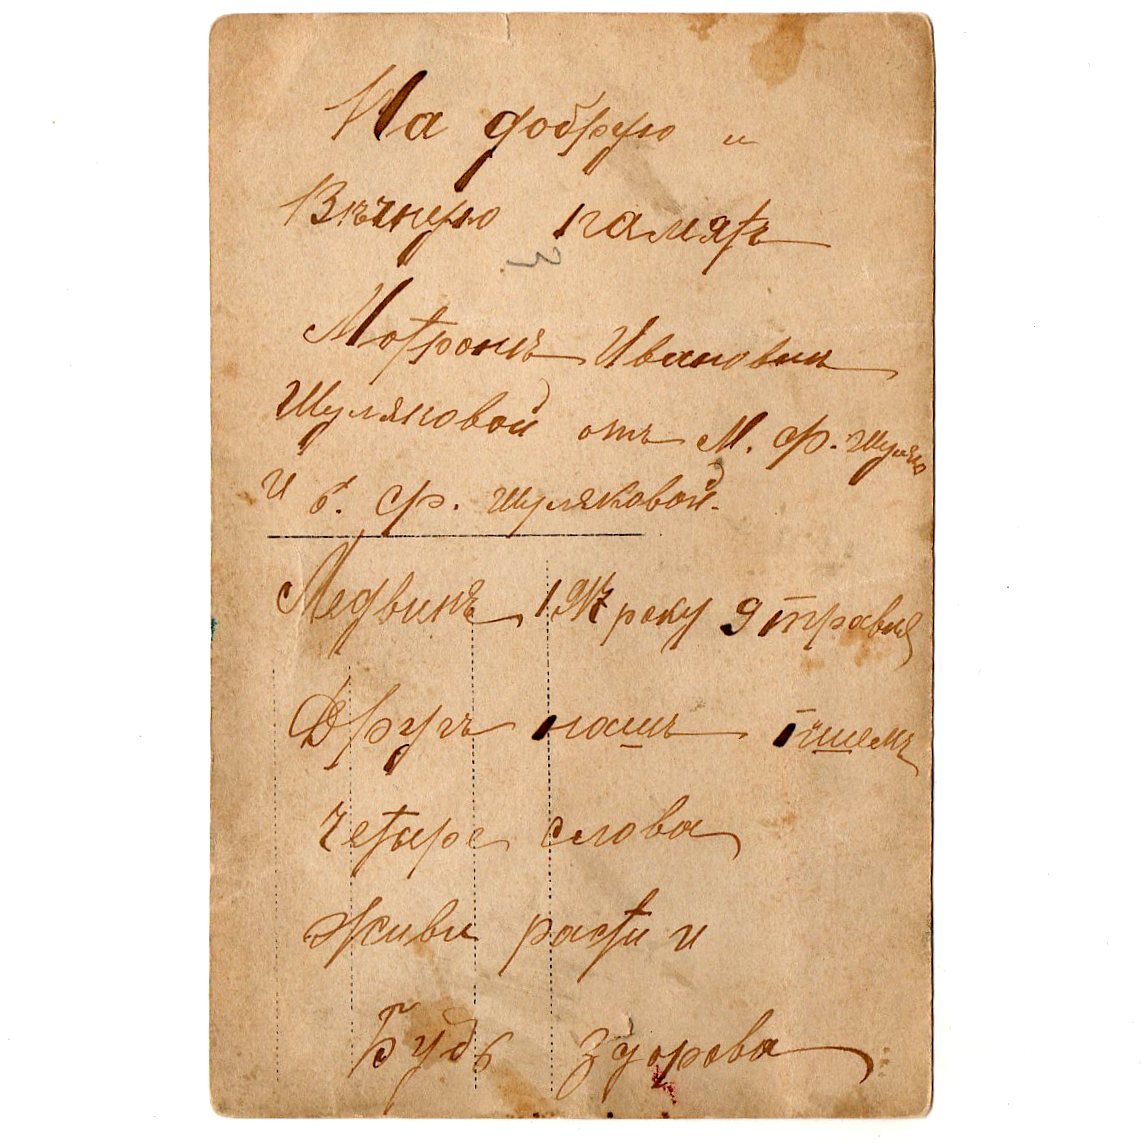 На добрую и
Вѣчнеую памятъ
Мотронѣ Ивановни
Шуляковой отъ М. Ф. Шуляко
и Ѳ. Ф. Шуляковой.
Медвинъ року 9 травня
Другъ нашъ пишемъ
четыре слова
Живи расти и
Будь здорова